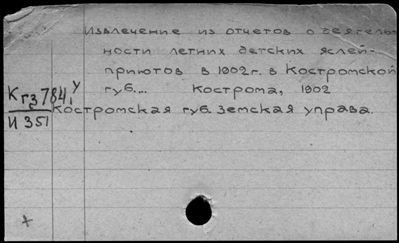 Извлечение из отчетов о деятель-
ности летних детских яслей-
приютов в 1902 г. в Костромской
губ... Кострома, 1902
Кгз 784, У
И 351
Костромская губ. земская управа.